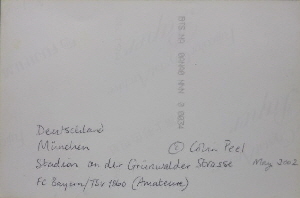 Deutschland
München © Colin Peel
Stadion an der Grünwalder Strasse May 2002
FC Bayern/TSV 1860 (Amateure)